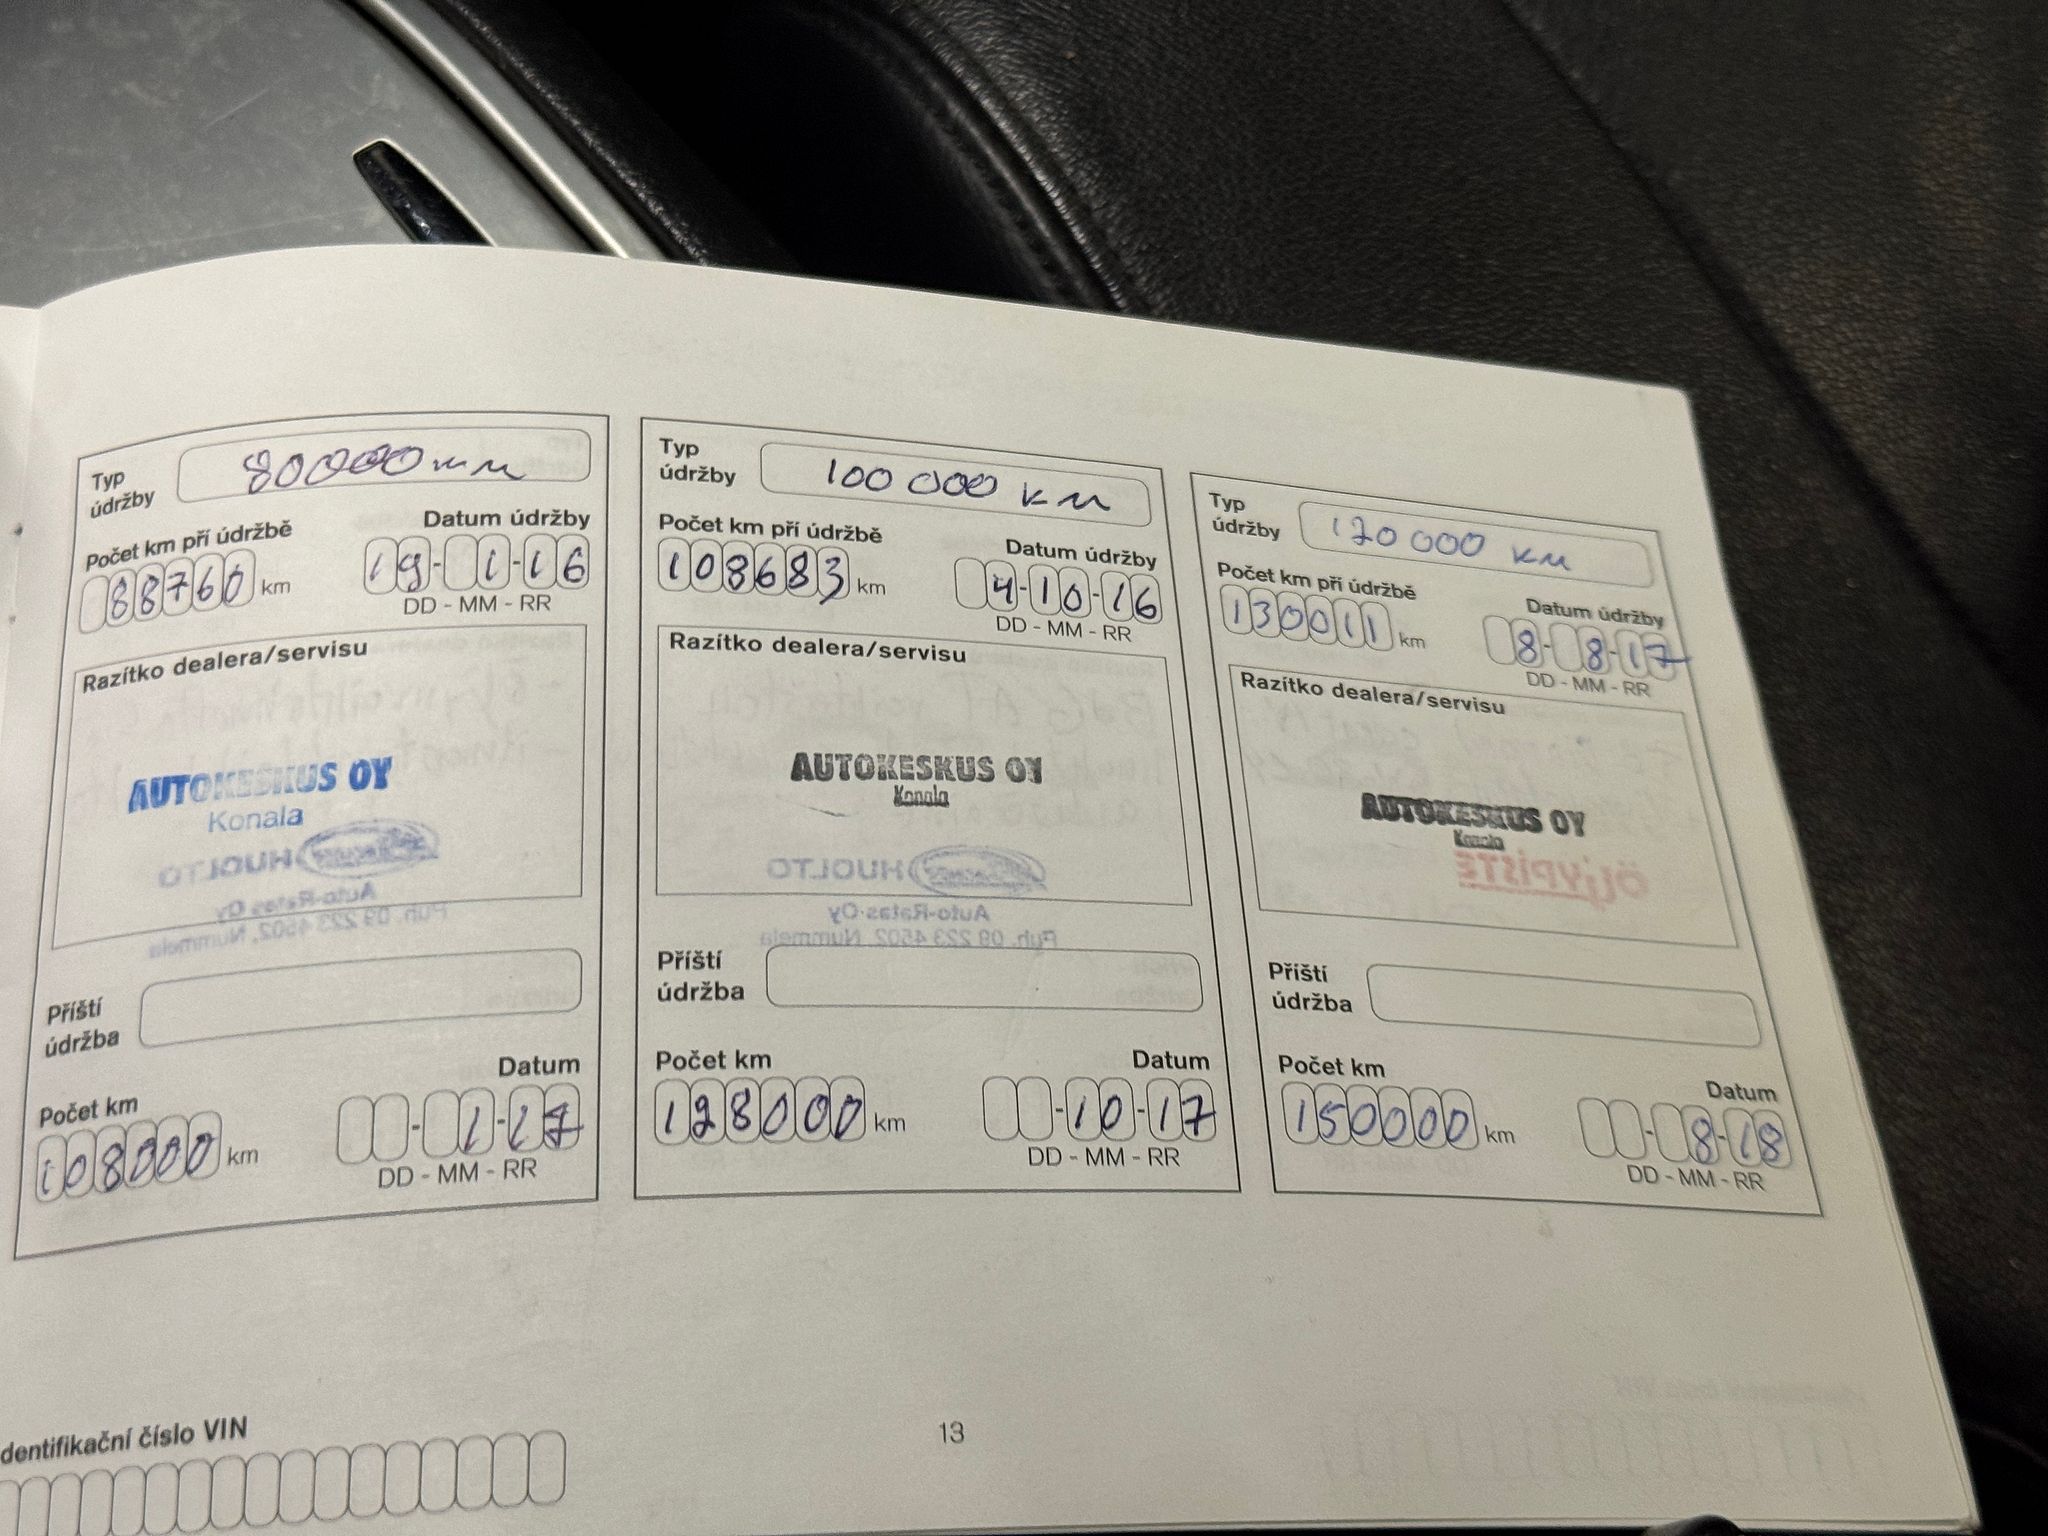 Typ údržby 80000 km
Počet km při údržbě
88760 km
Datum údržby
19-1-16
DD - MM - RR
Razítko dealera/servisu
AUTOKESKUS OY
Konala
HUOLTO
Auto-Ratas Oy
Puh. 09 223 4502, Nummela
Příští údržba
Počet km
108000 km
Datum
-1-17
DD - MM - RR
Typ údržby 100 000 km
Počet km při údržbě
108683 km
Datum údržby
4-10-16
DD - MM - RR
Razítko dealera/servisu
AUTOKESKUS OY
Konala
HUOLTO
Auto-Ratas Oy
Puh. 09 223 4502, Nummela
Příští údržba
Počet km
128000 km
Datum
-10-17
DD - MM - RR
Typ údržby 120 000 km
Počet km při údržbě
130011 km
Datum údržby
8-8-17
DD - MM - RR
Razítko dealera/servisu
AUTOKESKUS OY
Konala
ÖLJYPISTE
Příští údržba
Počet km
150000 km
Datum
-8-18
DD - MM - RR
dentifikační číslo VIN
13